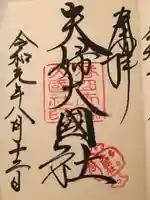 奉拝
夫婦大國社
令和元年八月十三日